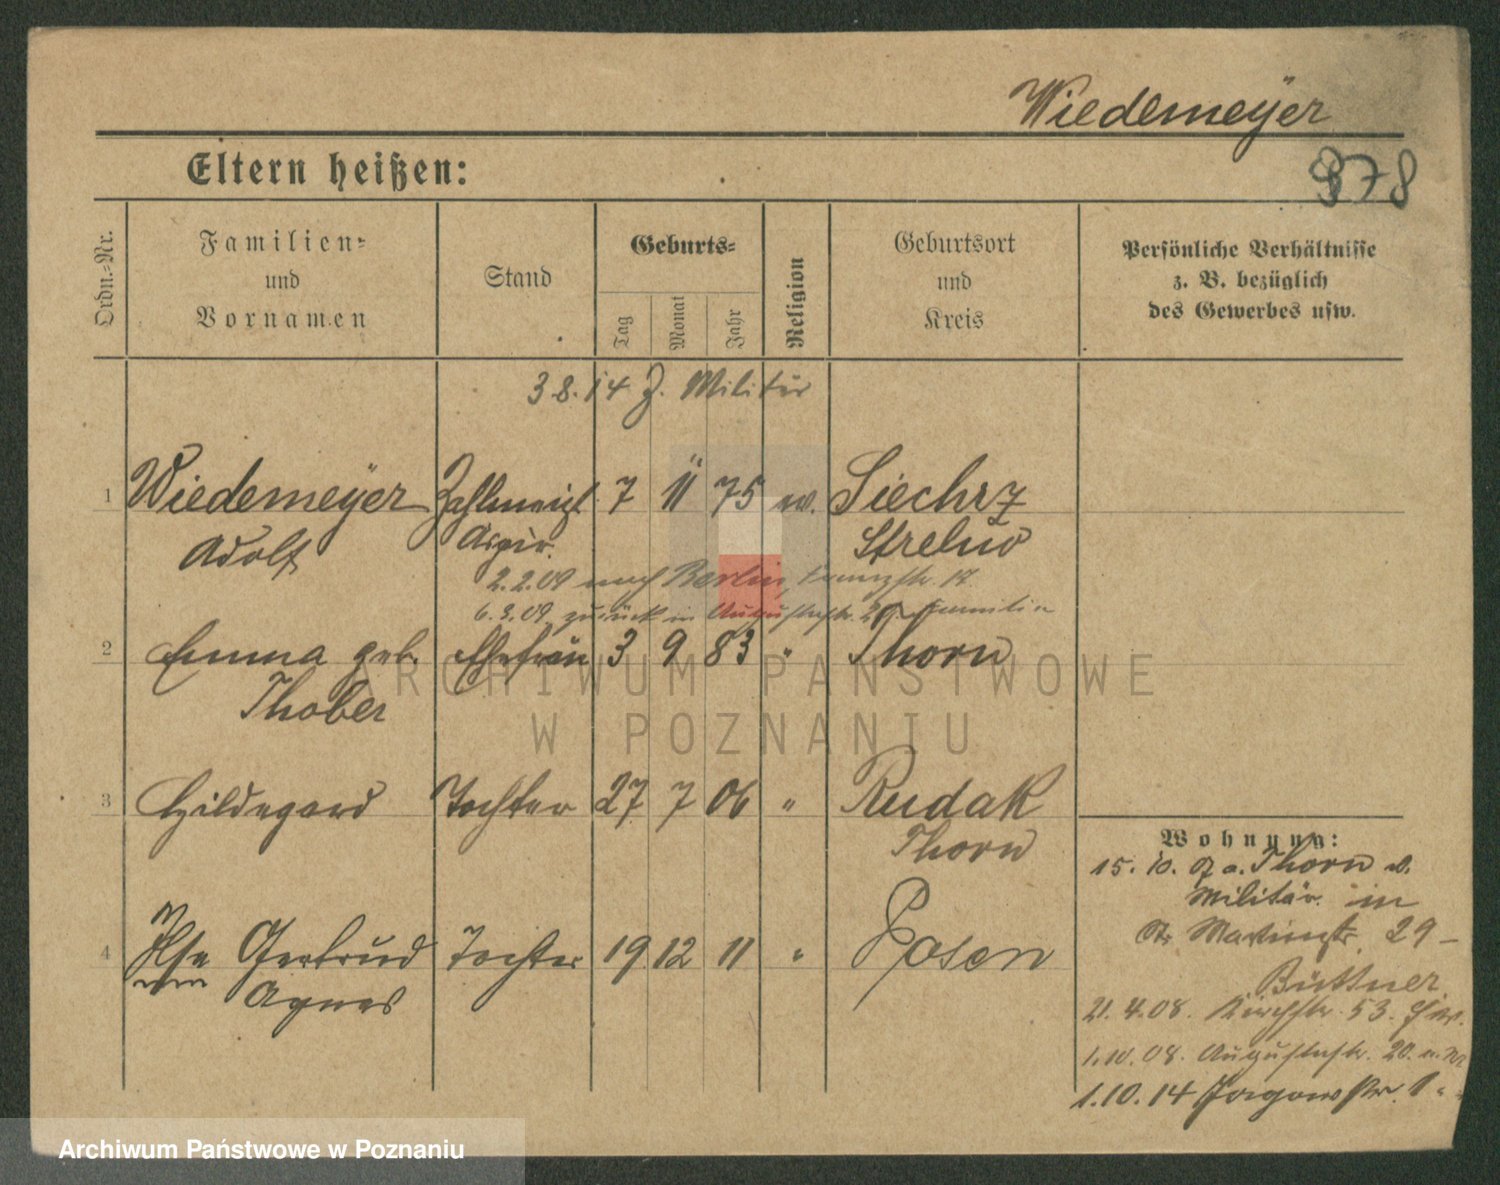 Wiedemeÿer
Eltern heißen:
378
Ordn.=Nr.
Familien=
und
Vornamen
Stand
Geburts=
Tag
Monat
Jahr
Religion
Geburtsort
und
Kreis
Persönliche Verhältnisse
z. B. bezüglich
des Gewerbes usw.
3.8.14 z. Militär
1 Wiedemeÿer Zahlmeist 7 11 75 ev. Siechrz
Adolf Aspir. Strelno
2.2.09 nach Berlin,
6.3.09 zurück in Augustastr. 20
2 Emma geb. Ehefrau 3 9 83 " Thorn
Thober
3 Hildegard Tochter 27 7 06 " Rudak
Thorn
4 Ilse Gertrud Tochter 19 12 11 " Posen
Agnes
Wohnung:
15.10.07 a. Thorn v.
Militär in
St Martinstr. 29 –
Büttner
21.4.08. Kirchstr. 53.
1.10.08. Augustastr. 20.
1.10.14 Jagowstr. 1
ARCHIWUM PAŃSTWOWE
W POZNANIU
Archiwum Państwowe w Poznaniu